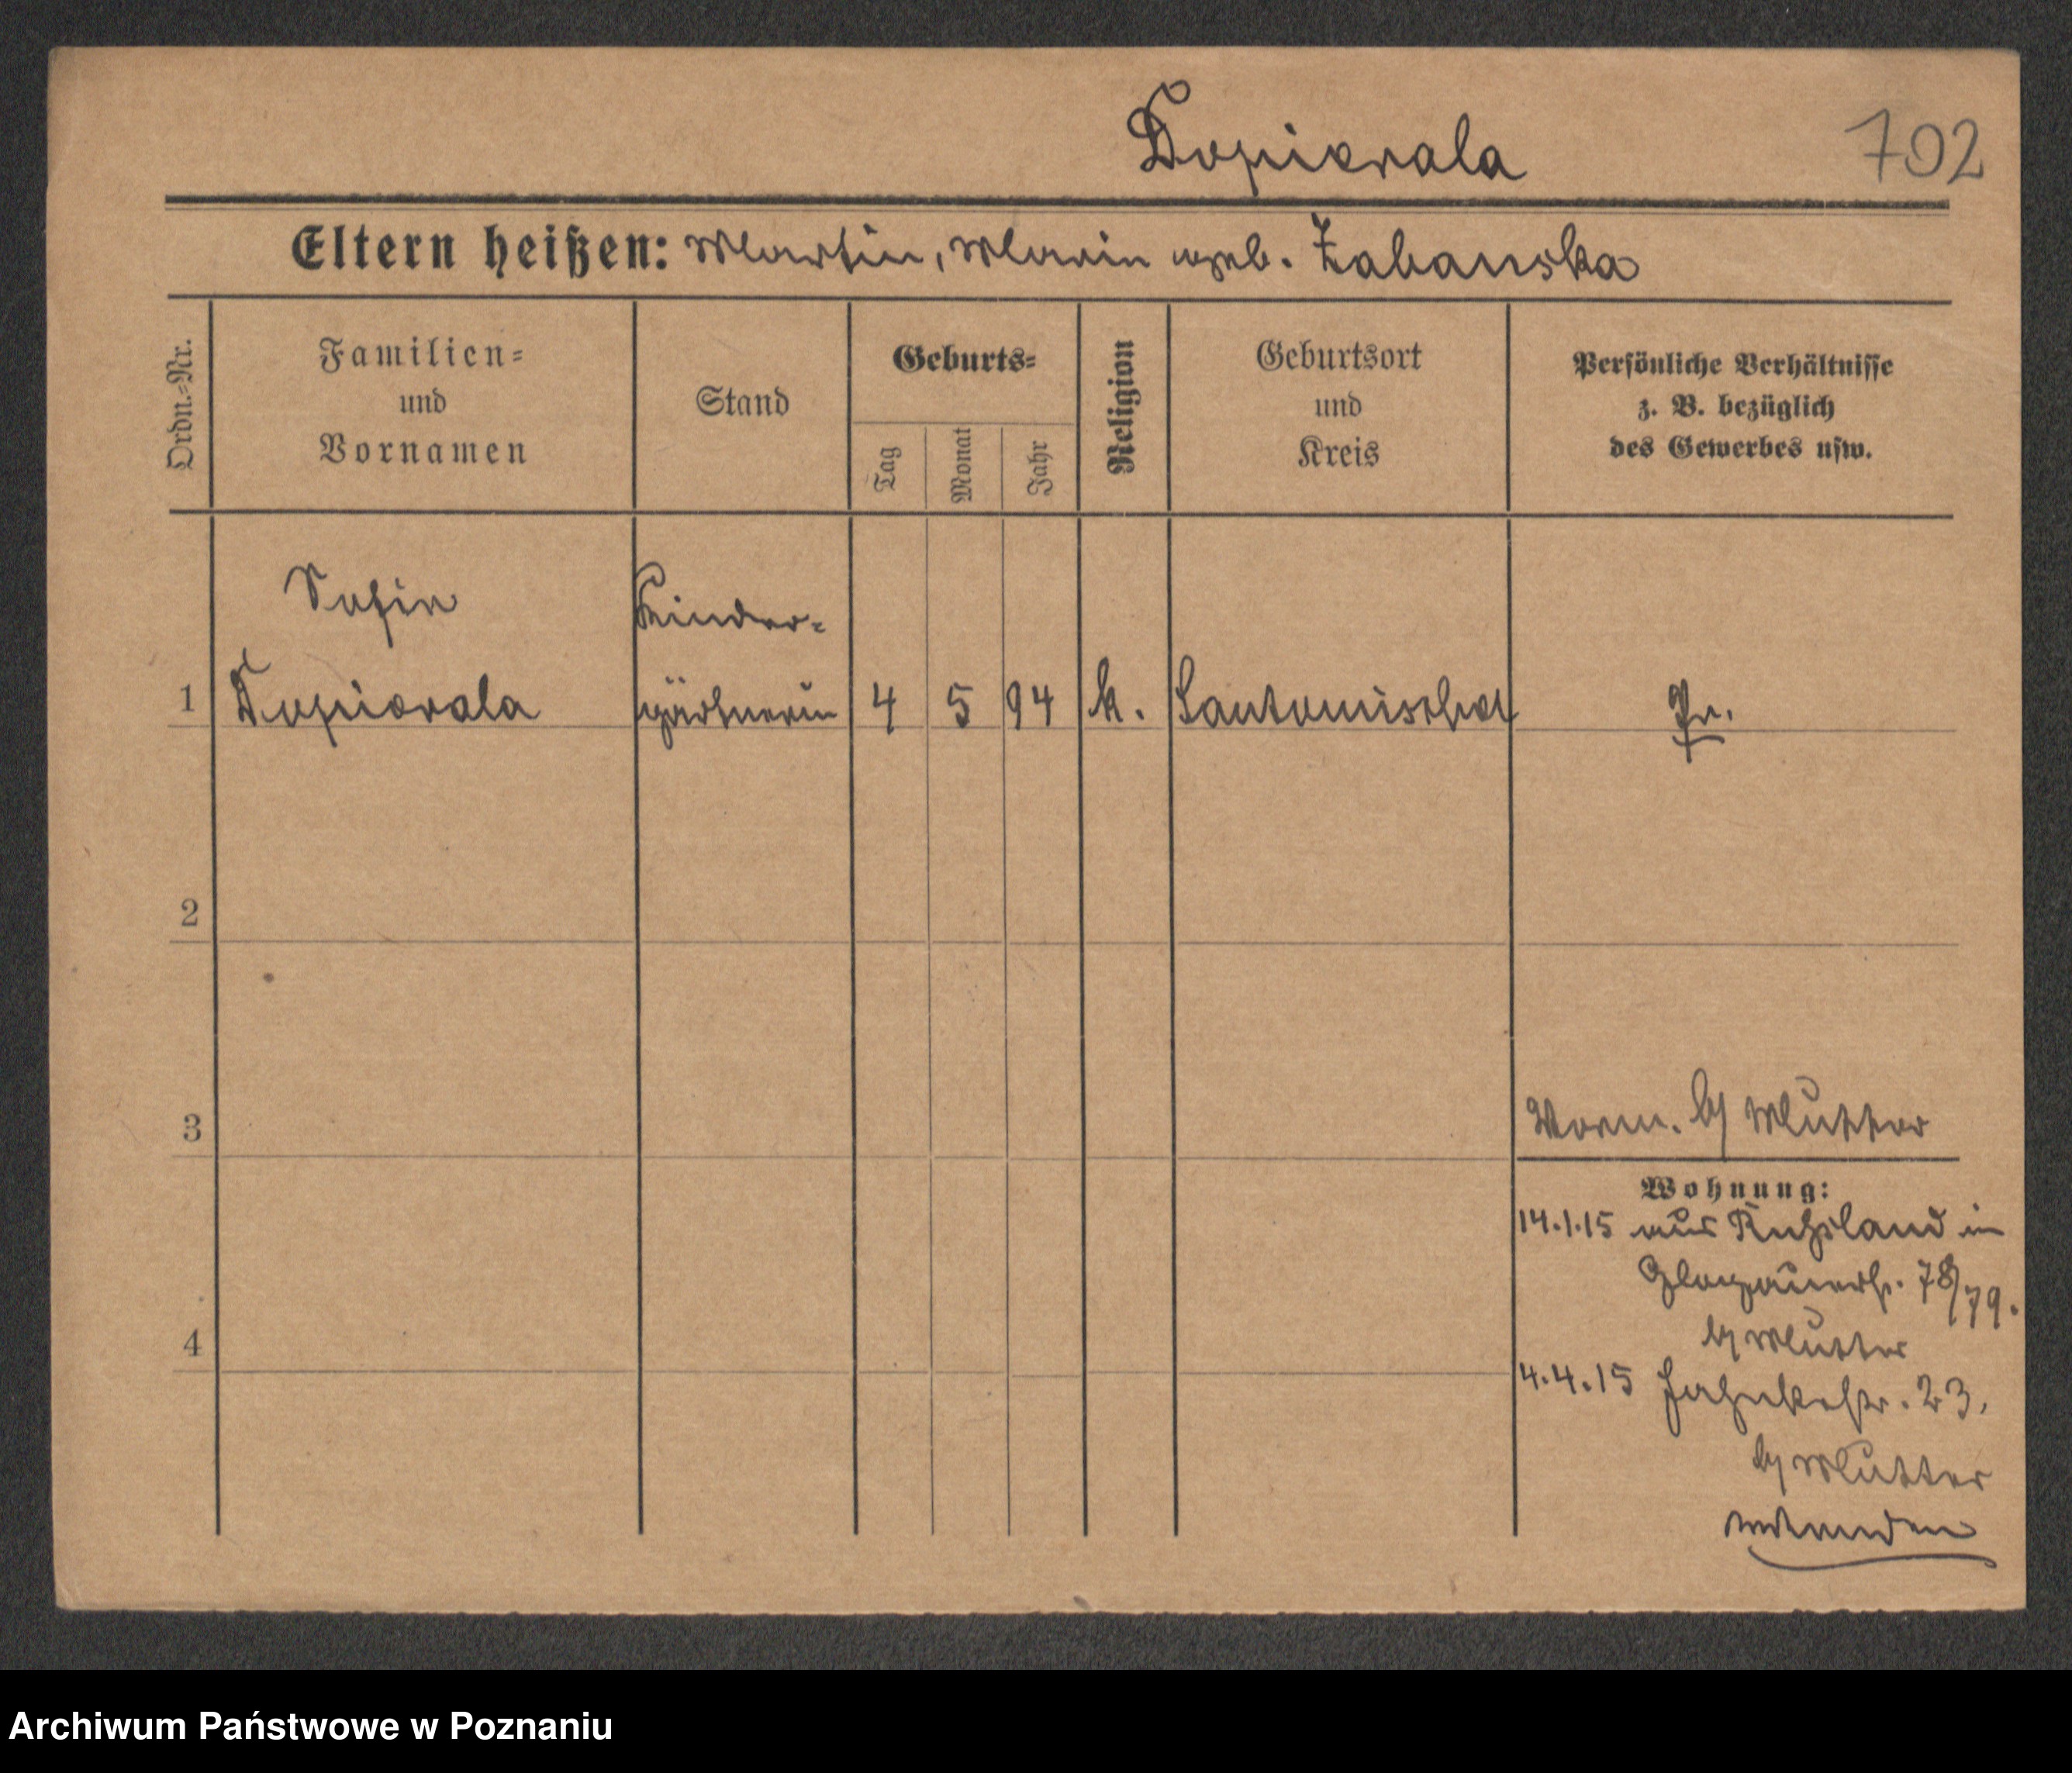 Dopierala
702
Eltern heißen: Martin, Marie geb. Zabanska
Ordn.=Nr.
Familien=
und
Vornamen
Stand
Geburts=
Tag
Monat
Jahr
Religion
Geburtsort
und
Kreis
Persönliche Verhältnisse
z. B. bezüglich
des Gewerbes usw.
1
Sofie
Dopierala
Kinder=
gärtnerin
4
5
94
k.
Santomischel
Pr.
2
3
Verm. b/ Mutter
Wohnung:
14.1.15 aus Rußland in
Glogauerstr. 78/79.
b/ Mutter
4
4.4.15 Jahnkestr. 23.
b/ Mutter
Archiwum Państwowe w Poznaniu